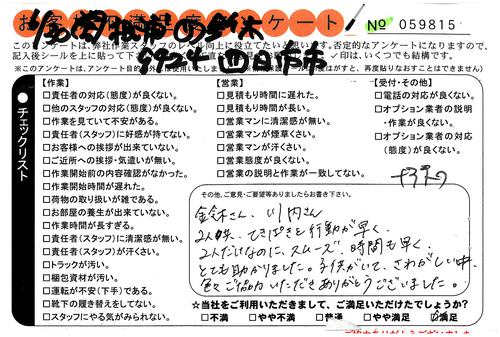 お客 ケート! № 059815
このアンケートは、弊社作業スタッフのレベル向上に役立てたいと思います。否定的なアンケートになりますので、
記入後シールを上に貼って下 ✓印は、いくつでも結構です。
※このアンケートは、アンケート目的 がすと、再度貼りなおすことはできません)
チェックリスト
【作業】
□責任者の対応(態度)が良くない。
□他のスタッフの対応(態度)が良くない。
□作業を見ていて不安がある。
□責任者(スタッフ)に好感が持てない。
□お客様への挨拶が出来ていない。
□ご近所への挨拶・気遣いが無い。
□作業開始前の内容確認がなかった。
□作業開始時間が遅れた。
□荷物の取り扱いが雑である。
□お部屋の養生が出来ていない。
□作業時間が長すぎる。
□責任者(スタッフ)に清潔感が無い。
□責任者(スタッフ)が汗くさい。
□トラックが汚い。
□梱包資材が汚い。
□運転が不安(下手)である。
□靴下の履き替えをしてない。
□スタッフにやる気がみられない。
【営業】
□見積もり時間に遅れた。
□見積もり時間が長い。
□営業マンに清潔感が無い。
□営業マンが煙草くさい。
□営業マンが汗くさい。
□営業態度が良くない。
□営業の説明と作業が一致してない。
【受付・その他】
□電話の対応が良くない。
□オプション業者の説明
・作業が良くない。
□オプション業者の対応
(態度)が良くない。
その他、ご意見・ご要望等ありましたらお書き下さい。
鈴木さん、川内さん
2人共、てきぱきと行動が早く、
2人だけなのに、スムーズ、時間も早く、
とても助かりました。子供がいて、さわがしい中、
色々ご協力いただきありがとうございました。
☆当社をご利用いただきまして、ご満足いただけたでしょうか?
□不満 □やや不満 □普通 □やや満足 ☑満足